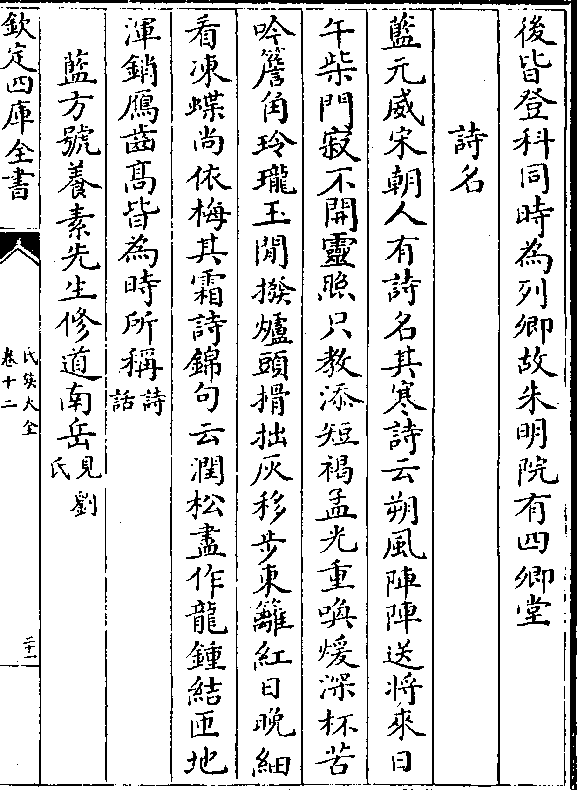 後皆登科同時為列卿故朱明院有四卿堂
詩名
藍元威宋朝人有詩名其寒詩云朔風陣陣送將來日
午柴門寂不開靈照只教添短褐孟光重喚煖深杯苦
吟簷角玲瓏玉閒撥爐頭榾柮灰移步東籬紅日晚細
看凍蝶尚依梅其霜詩錦句云澗松盡作龍鍾結匝地
渾銷鴈齒髙皆為時所稱詩
話
藍方號養素先生修道南岳見劉
氏
欽定四庫全書
氏族大全
卷十二
二十一